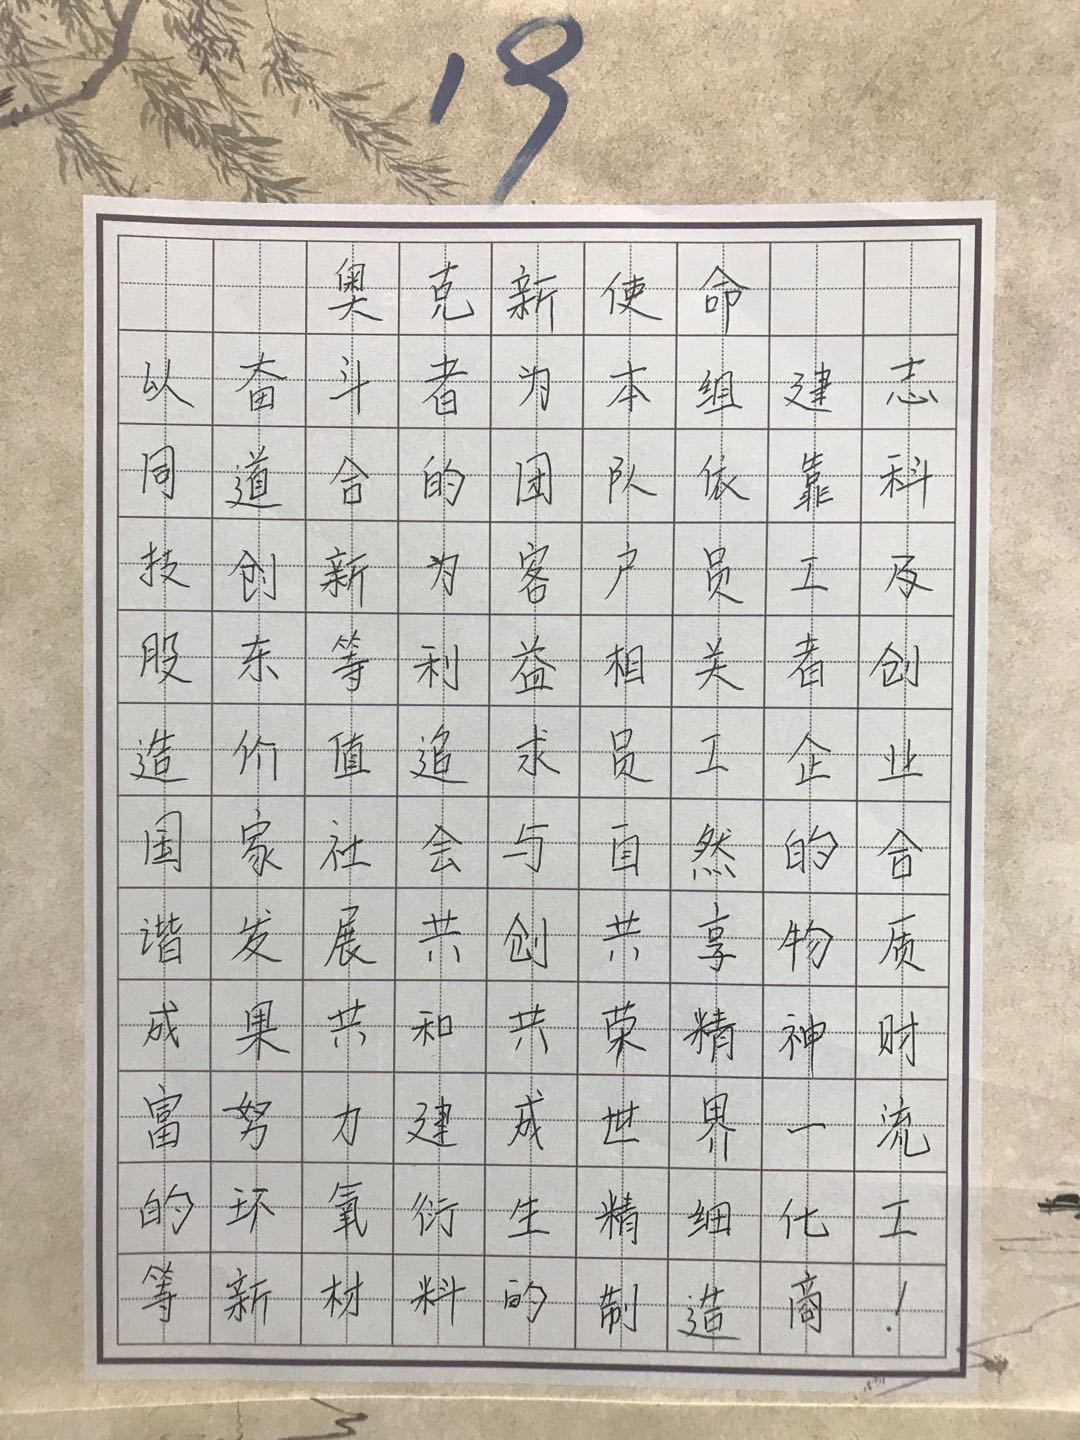 19
奥克新使命
以奋斗者为本组建志
同道合的团队依靠科
技创新为客户员工及
股东等利益相关者创
造价值追求员工企业
国家社会与自然的合
谐发展共创共享物质
成果共和共荣精神财
富努力建成世界一流
的环氧衍生精细化工
等新材料的制造商!